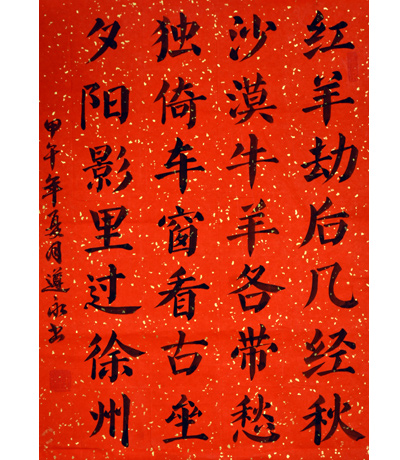 红羊劫后几经秋
沙漠牛羊各带愁
独倚车窗看古垒
夕阳影里过徐州
甲午年夏月道永书